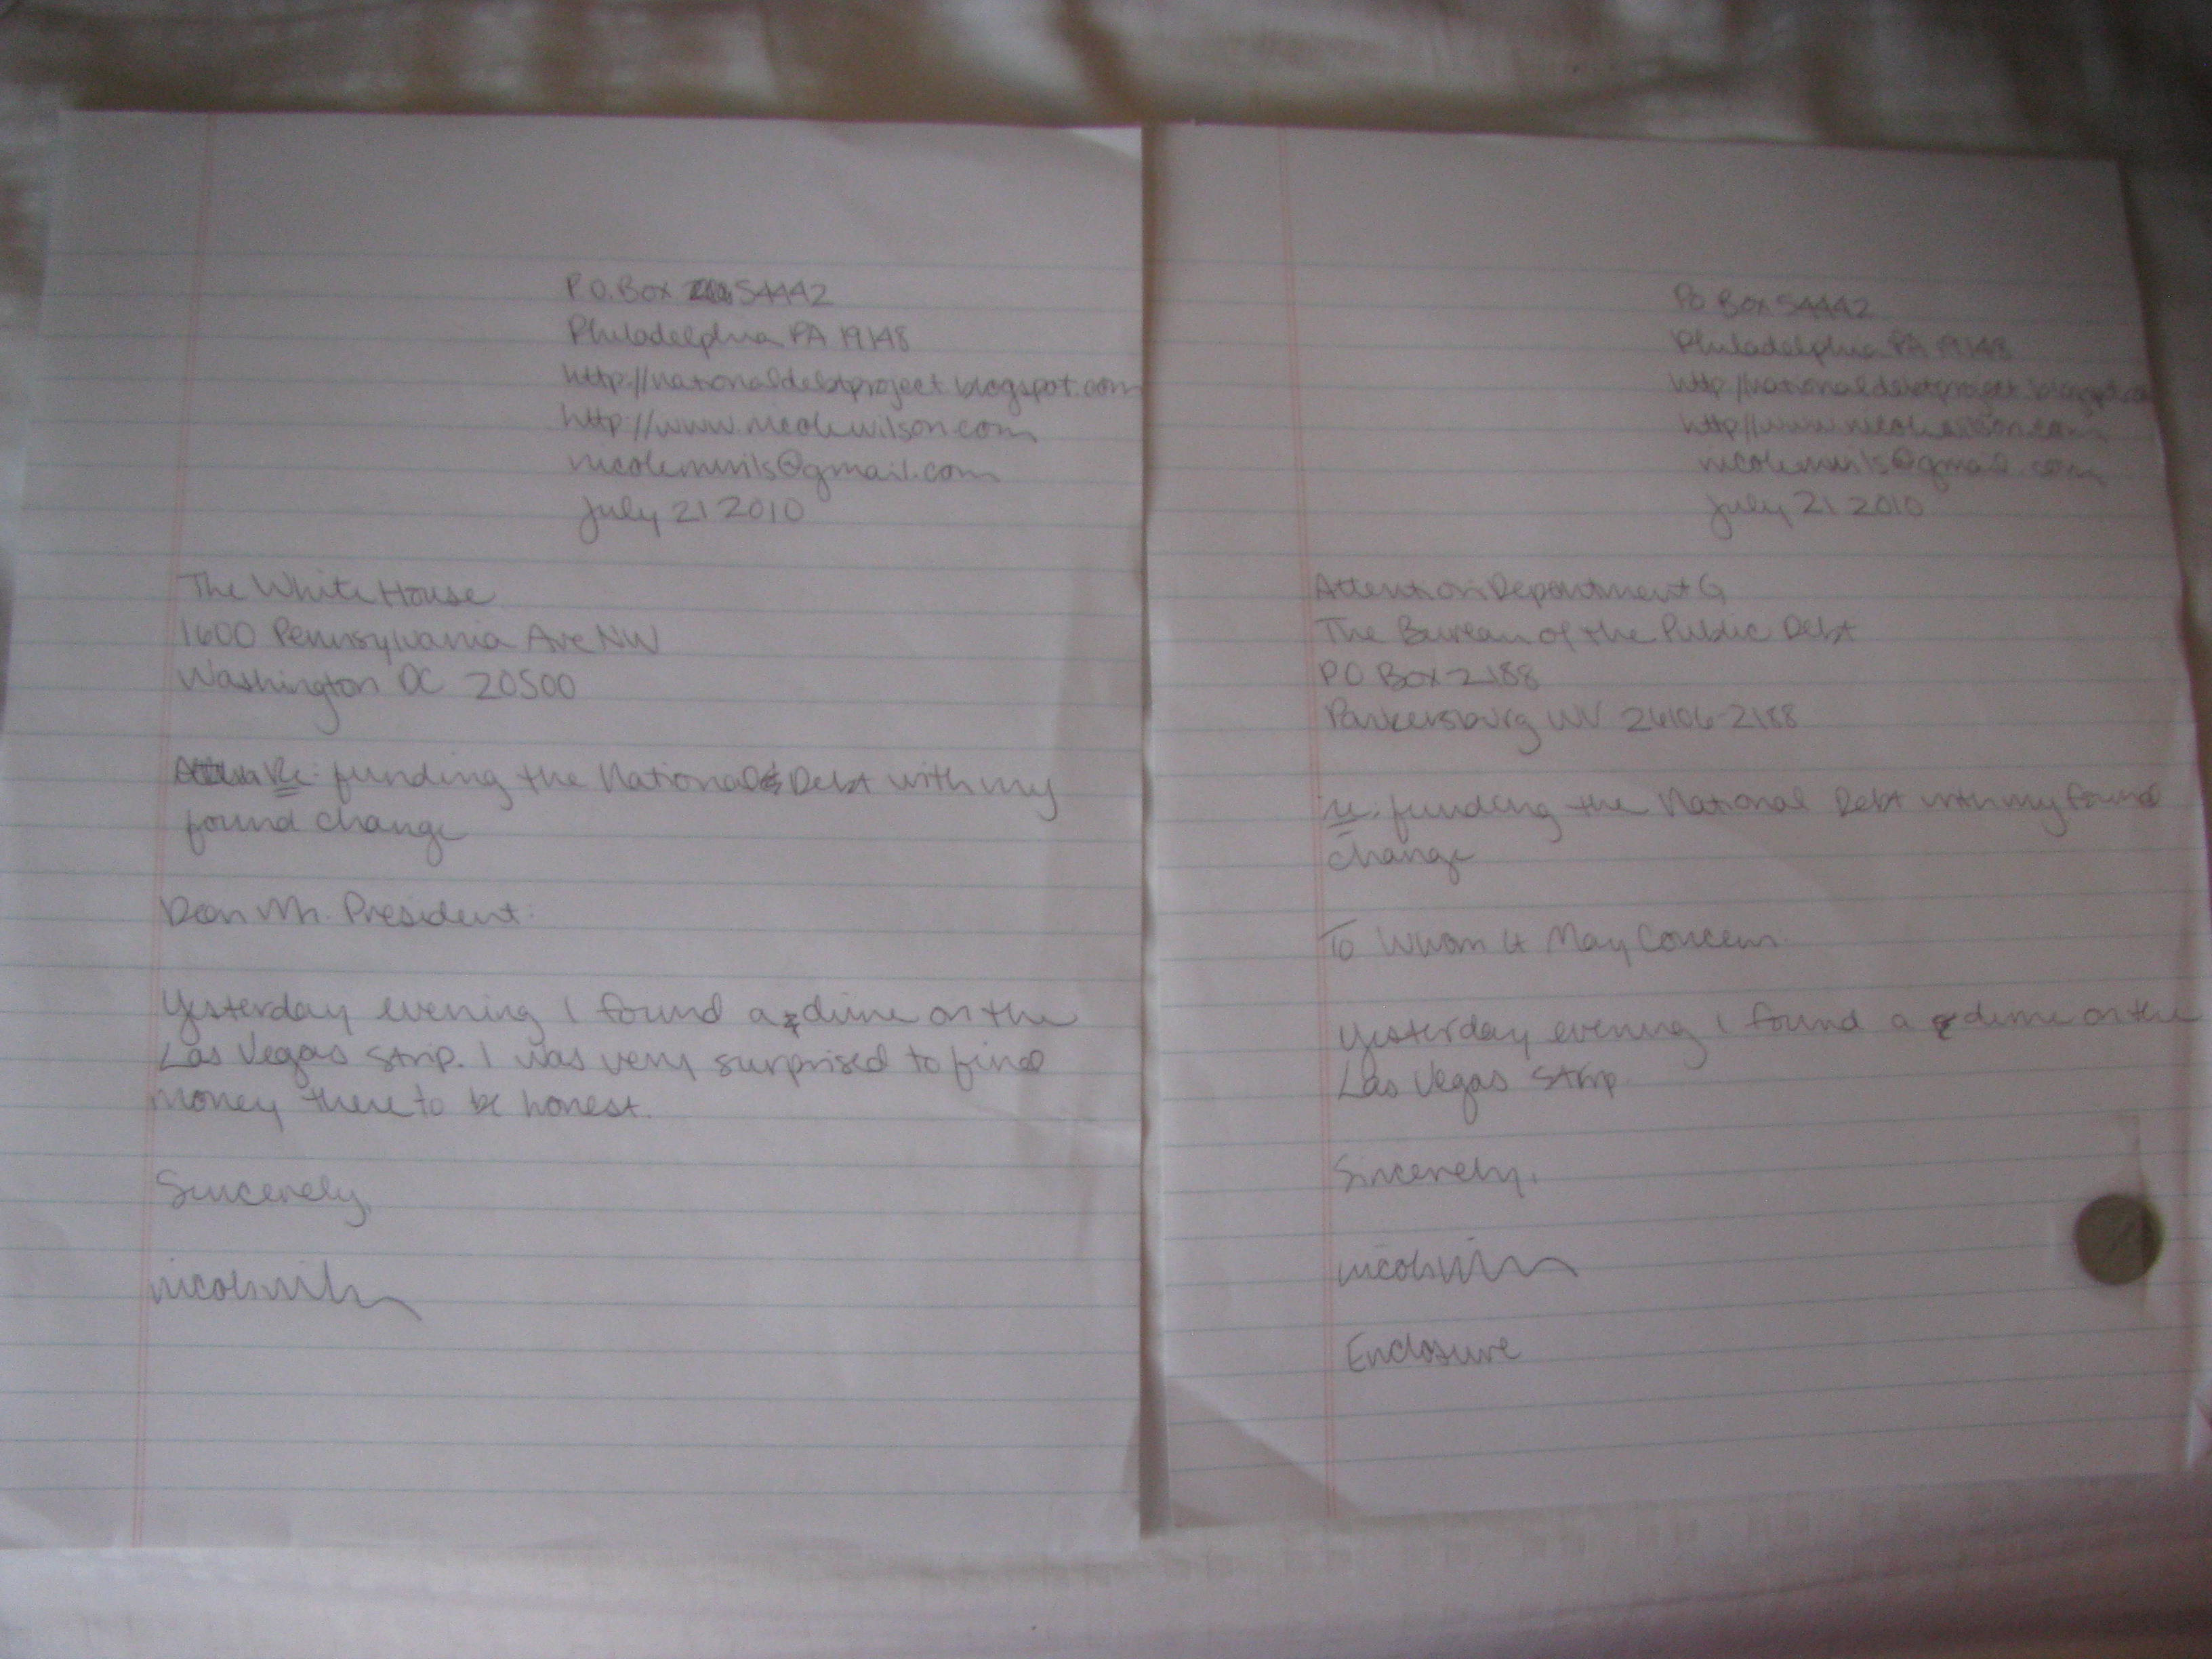 P.O. Box 54442
Philadelphia PA 19148
http://nationaldebtproject.blogspot.com
http://www.nicolewilson.com
nicolemwils@gmail.com
July 21 2010
The White House
1600 Pennsylvania Ave NW
Washington DC 20500
Re: funding the National Debt with my
found change
Dear Mr. President:
Yesterday evening I found a dime on the
Las Vegas strip. I was very surprised to find
money there to be honest.
Sincerely,
PO Box 54442
Philadelphia PA 19148
http://nationaldebtproject.blogspot.com
http://www.nicolewilson.com
nicolemwils@gmail.com
July 21 2010
Attention Department G
The Bureau of the Public Debt
PO Box 2188
Parkersburg WV 26106-2188
re: funding the National Debt with my found
change
To Whom It May Concern:
Yesterday evening I found a dime on the
Las Vegas strip.
Sincerely,
Enclosure